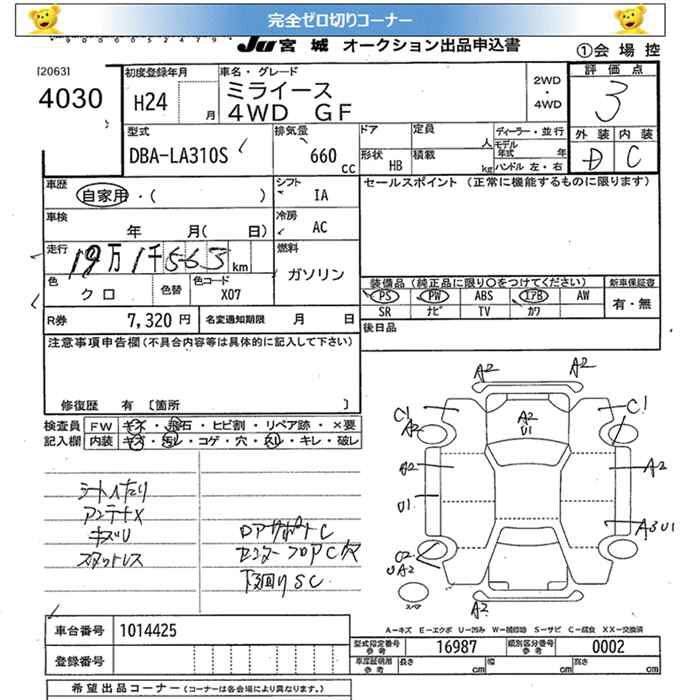 完全ゼロ切りコーナー
JU 宮城 オークション出品申込書
①会場控
[2063]
4030
初度登録年月
H24 月
車名・グレード
ミライース
4WD GF
2WD
・
4WD
評価点
3
外装 内装
D C
型式
DBA-LA310S
排気量
660 cc
ドア
定員 人
形状 HB
積載 kg
ディーラー・並行
モデル年式 年
ハンドル 左・右
車歴
自家用・( )
シフト
IA
セールスポイント (正常に機能するものに限ります)
車検
年 月( 日)
冷房
AC
走行
19万1千563 km
燃料
ガソリン
色
クロ
色替
色コード
X07
装備品 (純正品に限り○をつけてください)
新車保証書
PS PW ABS エアB AW
有・無
SR ナビ TV カワ
R券 7,320円
名変通知期限 月 日
後日品
注意事項申告欄(不具合内容等は具体的に記入して下さい)
修復歴 有 〔箇所 〕
検査員 FW キズ・飛石・ヒビ割・リペア跡・×要
記入欄 内装 キズ・汚レ・コゲ・穴・スレ・キレ・破レ
シートヘたり
アンテナX
キズU
スタットレス
ロアサポートC
センターフロアC穴
下廻りSC
A2
A2
C1
A2
A2
U1
C1
A2
A2
U1
A3 U1
C2
UA2
スペア
A2
A―キズ E―エクボ U―凹み W―補修跡 S―サビ C―腐食 XX―交換済
車台番号 1014425
登録番号
型式指定番号 参考 16987
類別区分番号 参考 0002
車庫証明用 参考 長さ cm 幅 cm 高さ cm
希望出品コーナー (コーナーは各会場により異なります。)